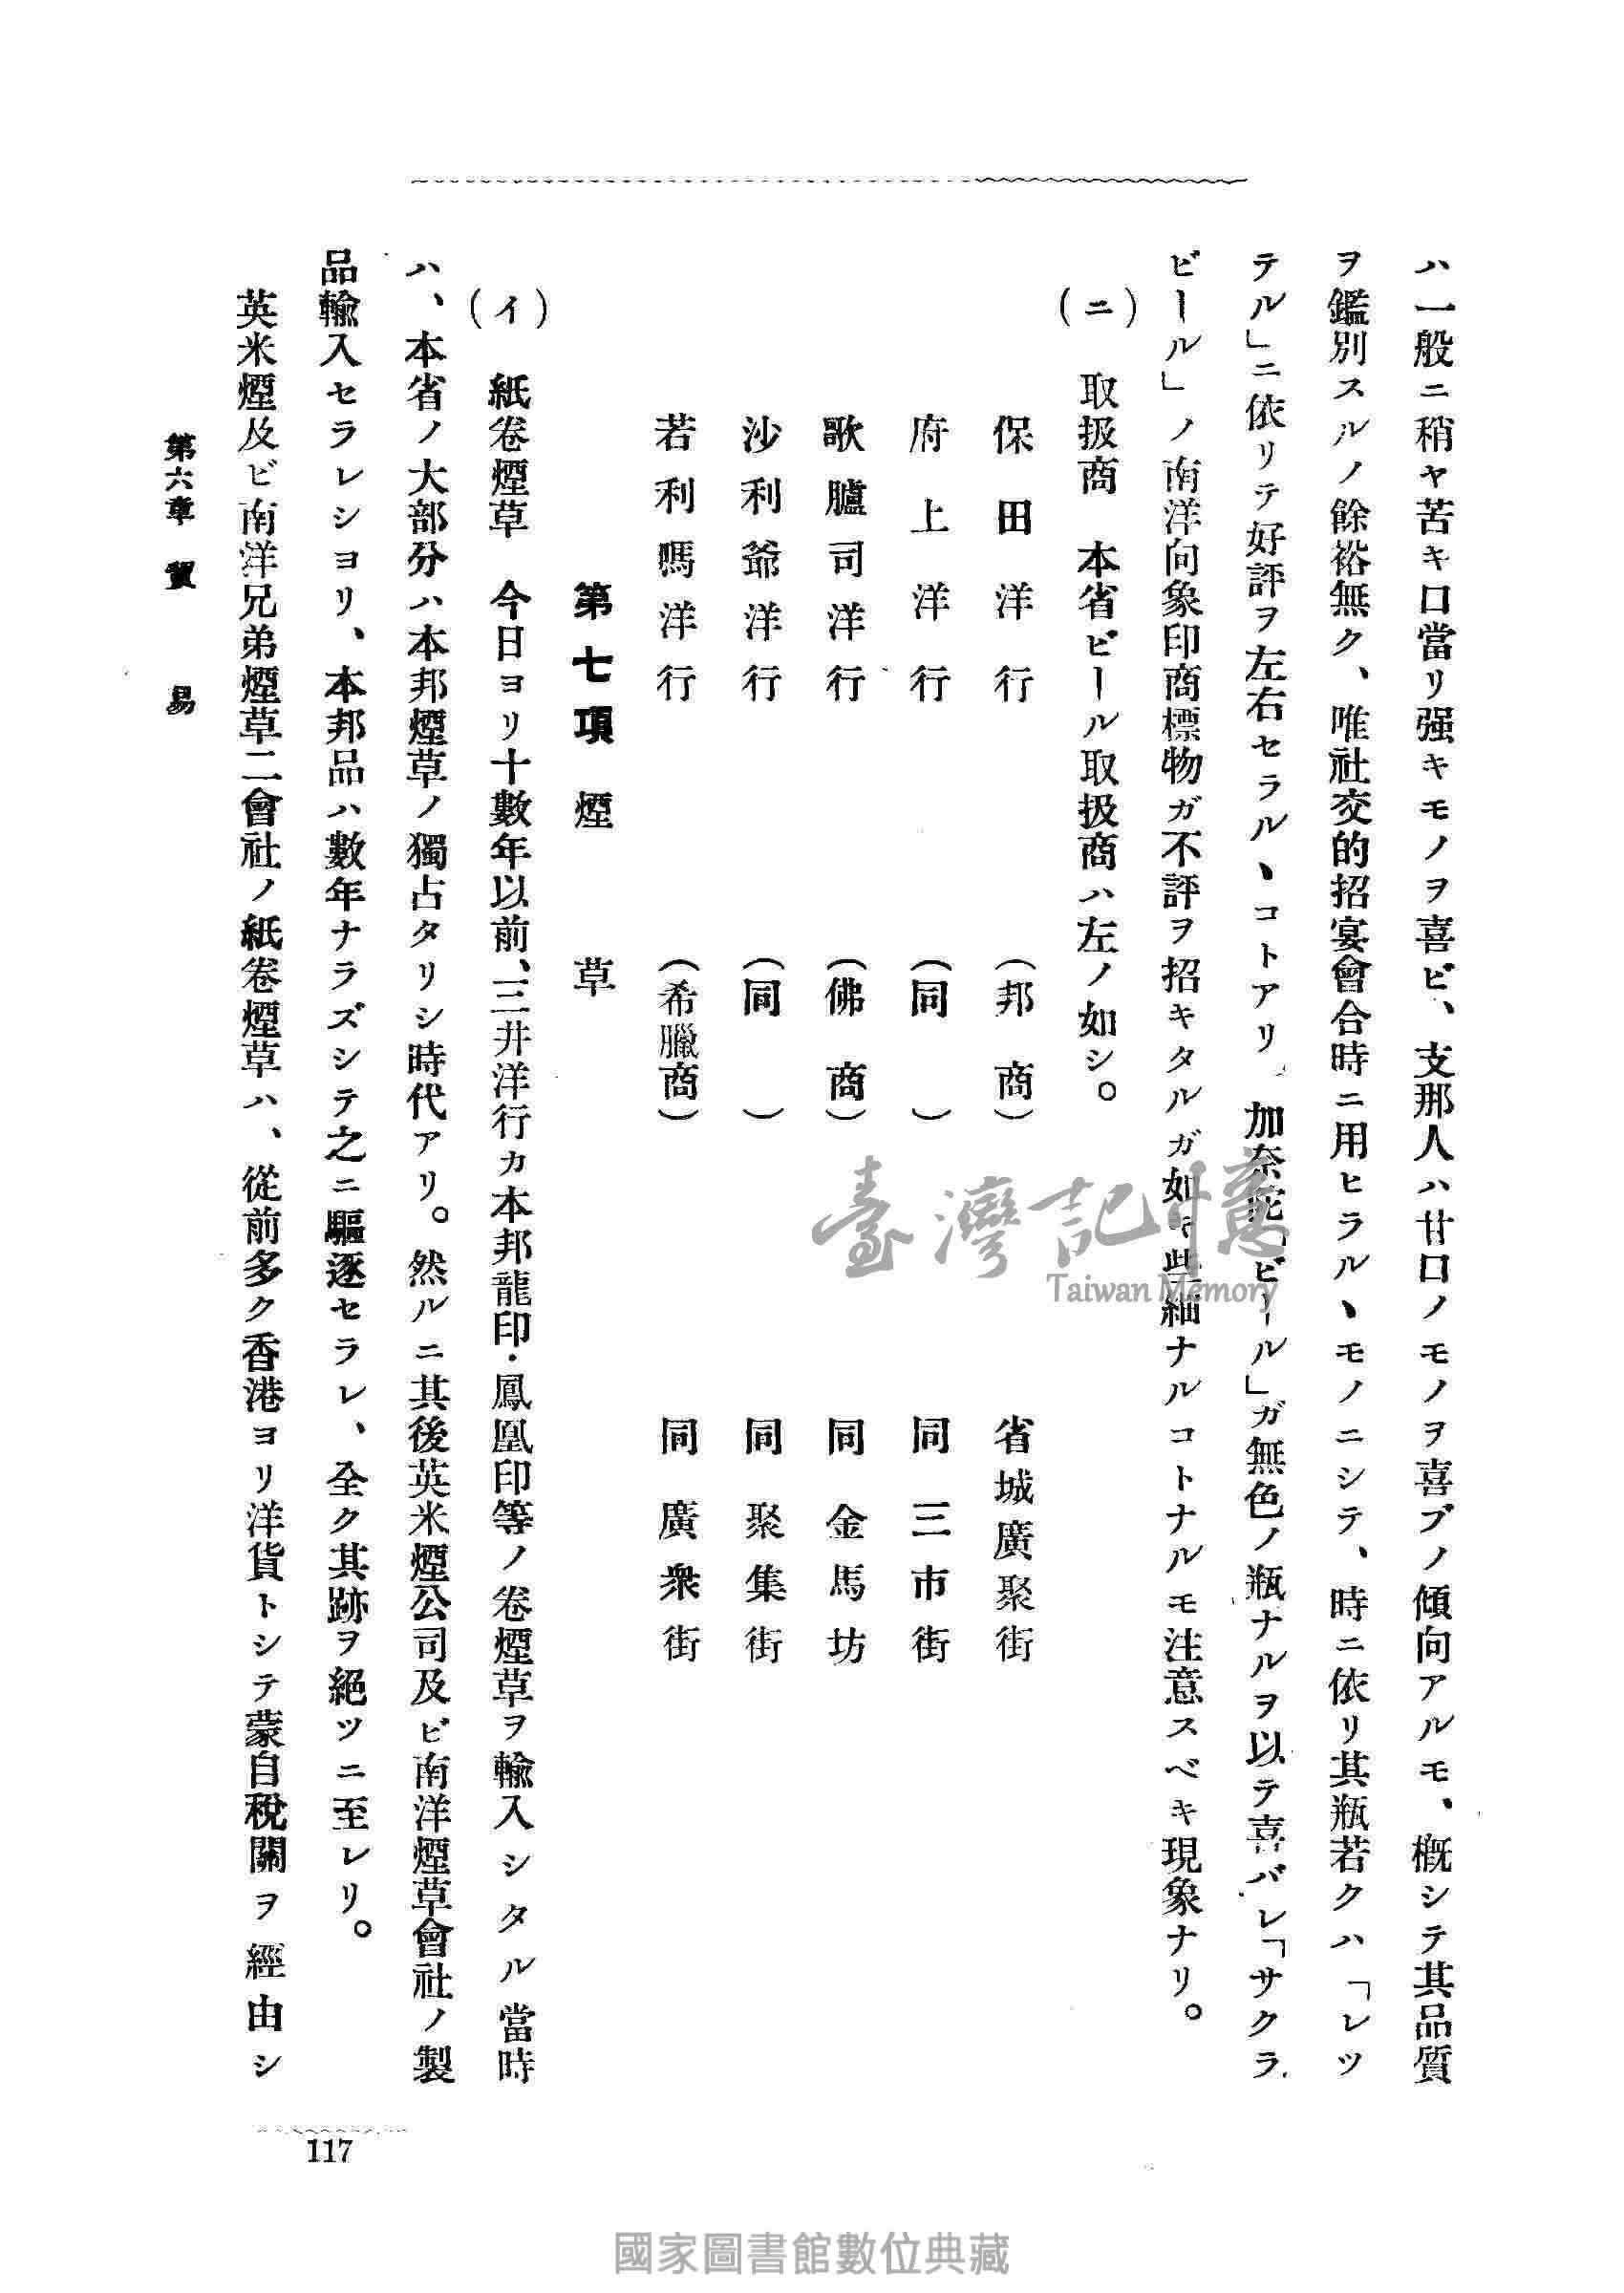 ハ一般ニ稍ヤ苦キ口當リ强キモノヲ喜ビ、支那人ハ甘口ノモノヲ喜ブノ傾向アルモ、概シテ其品質
ヲ鑑別スルノ餘裕無ク、唯社交的招宴會合時ニ用ヒラルヽモノニシテ、時ニ依リ其瓶若クハ「レツ
テル」ニ依リテ好評ヲ左右セラルヽコトアリ、加奈陀「ビール」ガ無色ノ瓶ナルヲ以テ喜バレ「サクラ
ビール」ノ南洋向象印商標物ガ不評ヲ招キタルガ如キ些細ナルコトナルモ注意スベキ現象ナリ。
(ニ) 取扱商 本省ビール取扱商ハ左ノ如シ。
保田洋行 (邦商) 省城廣聚街
府上洋行 (同) 同三市街
歌臚司洋行 (佛商) 同金馬坊
沙利爺洋行 (同) 同聚集街
若利嗎洋行 (希臘商) 同廣衆街
第七項 煙草
(イ) 紙卷煙草 今日ヨリ十數年以前、三井洋行カ本邦龍印・鳳凰印等ノ卷煙草ヲ輸入シタル當時
ハ、本省ノ大部分ハ本邦煙草ノ獨占タリシ時代アリ。然ルニ其後英米煙公司及ビ南洋煙草會社ノ製
品輸入セラレシヨリ、本邦品ハ數年ナラズシテ之ニ驅逐セラレ、全ク其跡ヲ絕ツニ至レリ。
英米煙及ビ南洋兄弟煙草二會社ノ紙卷煙草ハ、從前多ク香港ヨリ洋貨トシテ蒙自稅關ヲ經由シ
第六章 貿易
117
臺灣記憶
Taiwan Memory
國家圖書館數位典藏